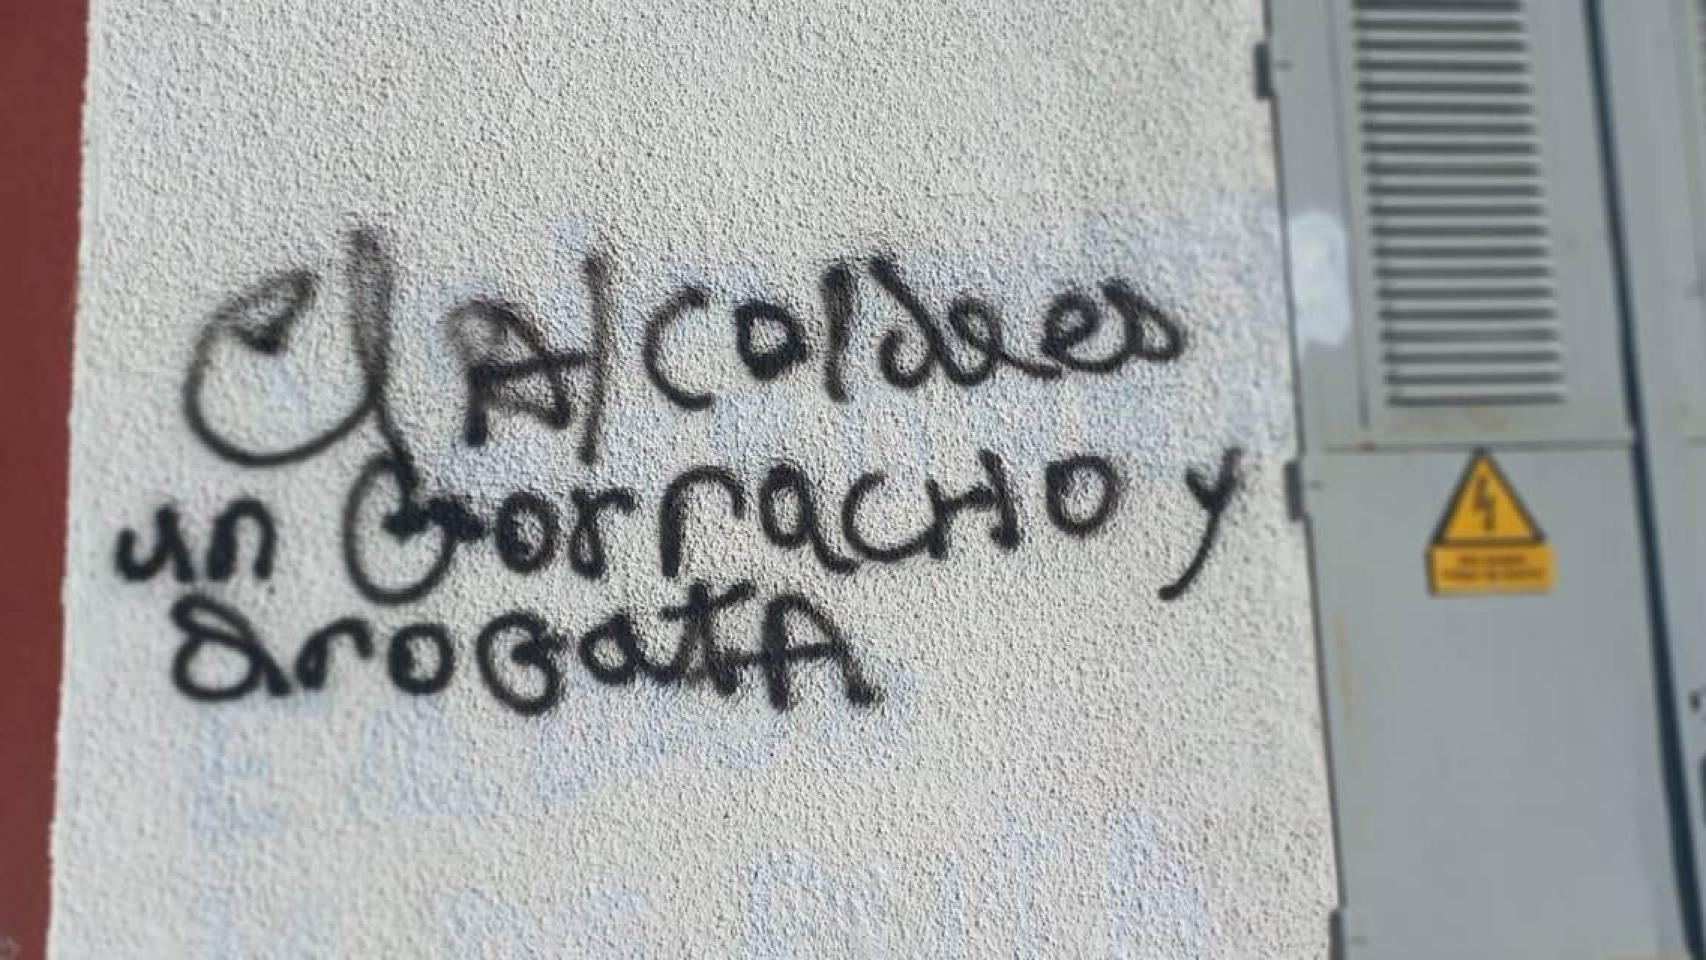 el Alcoldees
un GorracHo y
drogatA